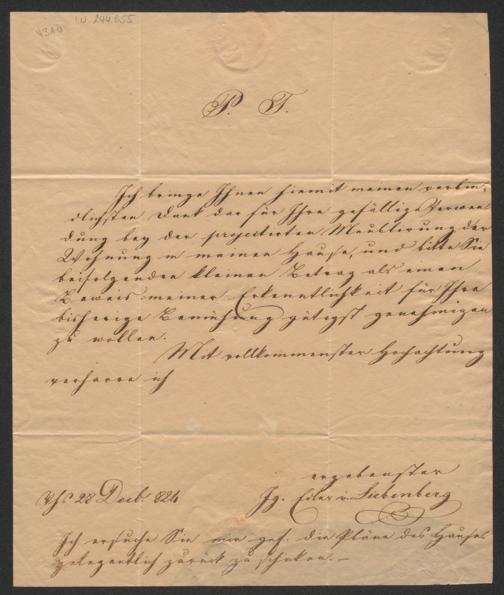 I.N. 244.655
P. T.
Ich bringe Ihnen hiemit meinen verbin-
dlichsten Dank dar für Ihre gefällige Verwen
dung bey der projectirten Meublirung der
Wohnung in meinen Hause, und bitte Sie
beifolgenden kleinen Betrag als einen
Beweis meiner Erkenntlichkeit für Ihre
bisherige Bemühung gütigst genehmigen
zu wollen.
Mit vollkommenster Hochachtung
verharre ich
ergebenster
28 Decb. 824
Jg. Edler v. Liebenberg
Ich ersuche Sie mir gef. die Pläne des Hauses
gelegentlich zurück zu schicken.–